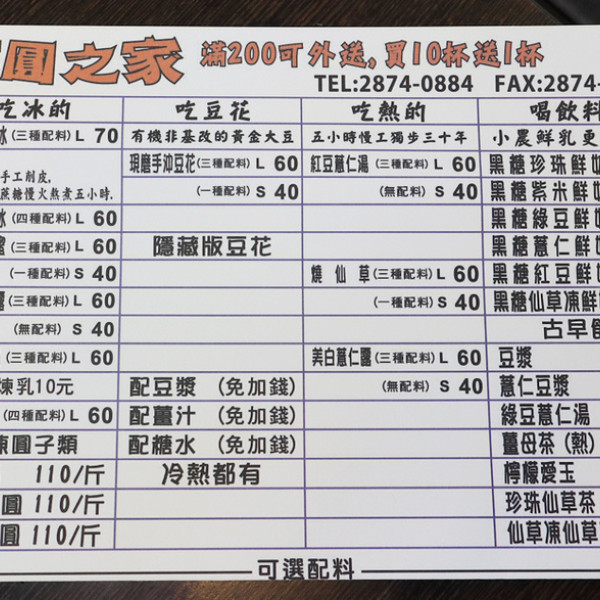 圓之家 滿200可外送,買10杯送1杯
TEL:2874-0884 FAX:2874-
吃冰的 吃豆花 吃熱的 喝飲料
冰(三種配料) L 70 有機非基改的黃金大豆 五小時慢工獨步三十年 小農鮮乳更
手工削皮, 現磨手沖豆花(三種配料) L 60 紅豆薏仁湯(三種配料) L 60 黑糖珍珠鮮
蔗糖慢火熬煮五小時. (一種料) S 40 (無配料) S 40 黑糖紫米鮮
冰(四種配料) L 60 黑糖綠豆鮮
(三種配料) L 60 隱藏版豆花 黑糖薏仁鮮
(一種料) S 40 燒仙草(三種配料) L 60 黑糖紅豆鮮
(三種配料) L 60 (一種配料) S 40 黑糖仙草凍鮮
(無配料) S 40 古早
(三種配料) L 60 美白薏仁露(三種配料) L 60 豆漿
煉乳10元 配豆漿 (免加錢) (無配料) S 40 薏仁豆漿
(四種配料) L 60 配薑汁 (免加錢) 綠豆薏仁湯
凍圓子類 配糖水 (免加錢) 薑母茶(熱)
110/斤 冷熱都有 檸檬愛玉
圓 110/斤 珍珠仙草茶
圓 110/斤 仙草凍仙草
可選配料